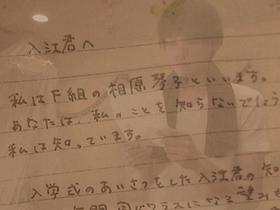 入江君へ
私はF組の相原琴子といいます。
あなたは、私のことを知らないでしょう
私は知っています。
入学式のあいさつをした入江君の知
同じクラスになる